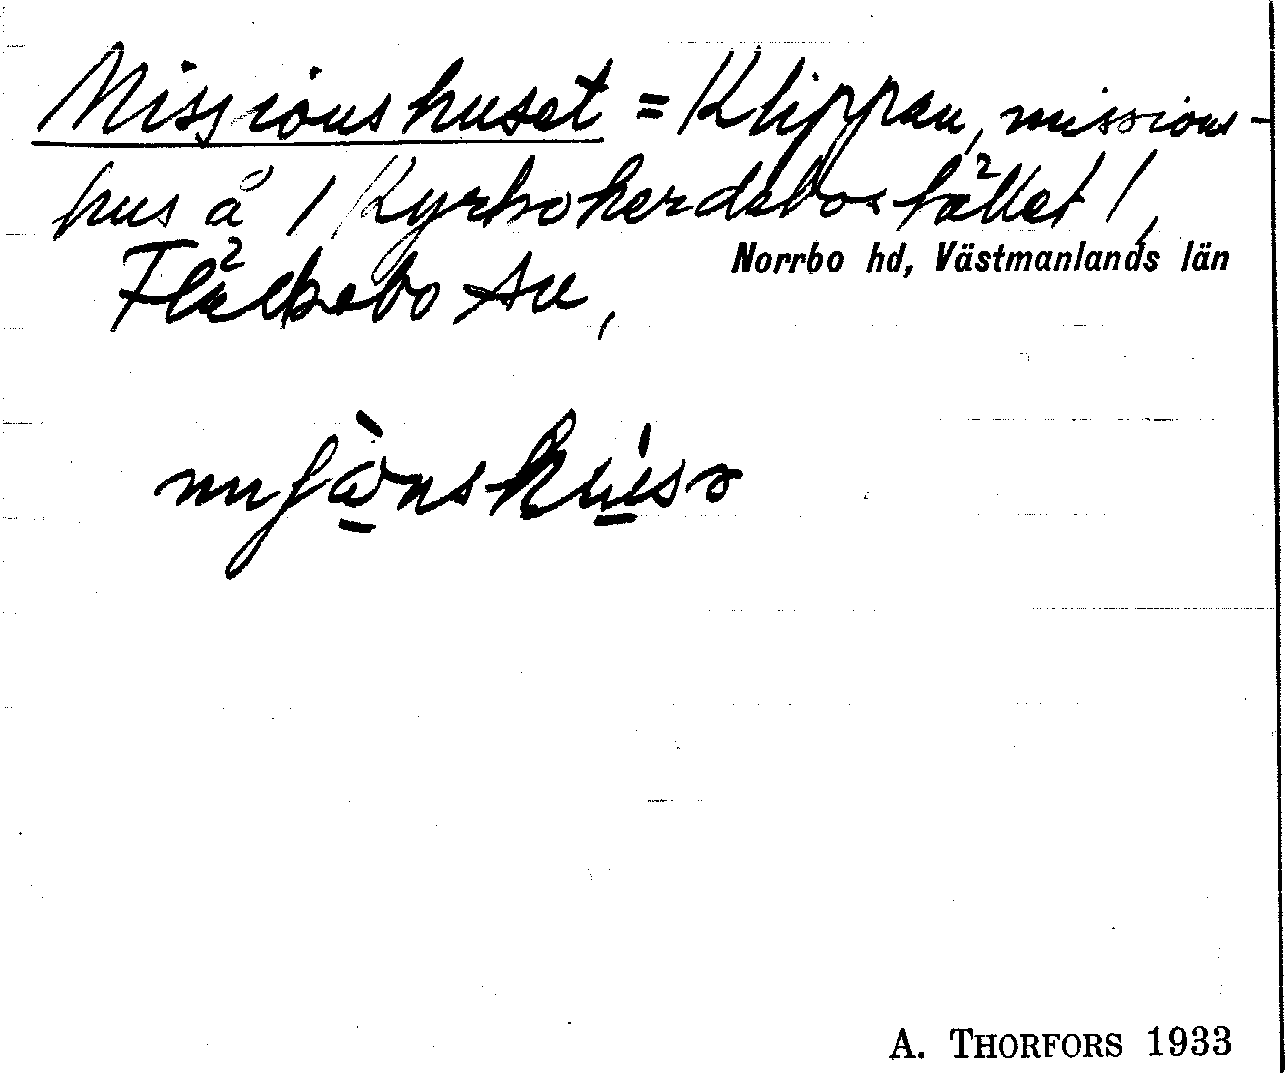 Missionshuset = Klippan, missions-
hus å 1 Kyrkoherdebostället 1,
Fläckebo sn,
Norrbo hd, Västmanlands län
A. THORFORS 1933